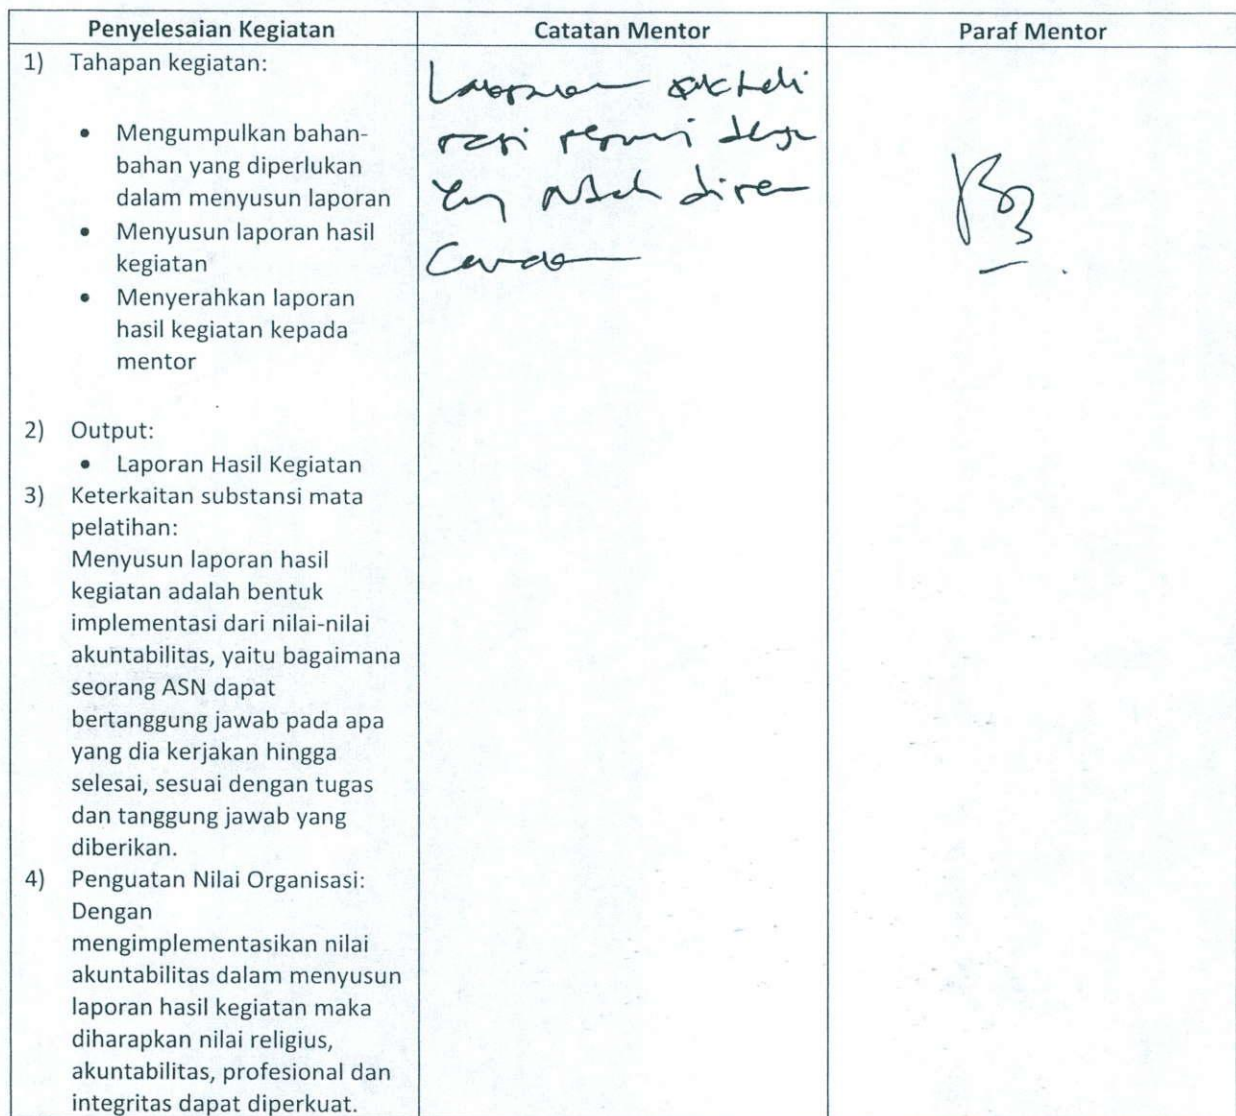 Penyelesaian Kegiatan
Catatan Mentor
Paraf Mentor
1) Tahapan kegiatan:
• Mengumpulkan bahan-
bahan yang diperlukan
dalam menyusun laporan
• Menyusun laporan hasil
kegiatan
• Menyerahkan laporan
hasil kegiatan kepada
mentor
2) Output:
• Laporan Hasil Kegiatan
3) Keterkaitan substansi mata
pelatihan:
Menyusun laporan hasil
kegiatan adalah bentuk
implementasi dari nilai-nilai
akuntabilitas, yaitu bagaimana
seorang ASN dapat
bertanggung jawab pada apa
yang dia kerjakan hingga
selesai, sesuai dengan tugas
dan tanggung jawab yang
diberikan.
4) Penguatan Nilai Organisasi:
Dengan
mengimplementasikan nilai
akuntabilitas dalam menyusun
laporan hasil kegiatan maka
diharapkan nilai religius,
akuntabilitas, profesional dan
integritas dapat diperkuat.
Laporan
yang dire